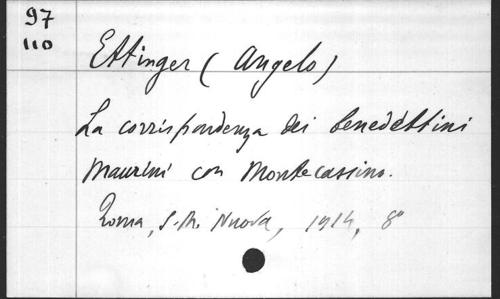 97
110
Ettinger (Angelo)
La corrispondenza dei benedettini
Maurini con Montecassino.
Roma, S.M. Nuova, 1914, 8°